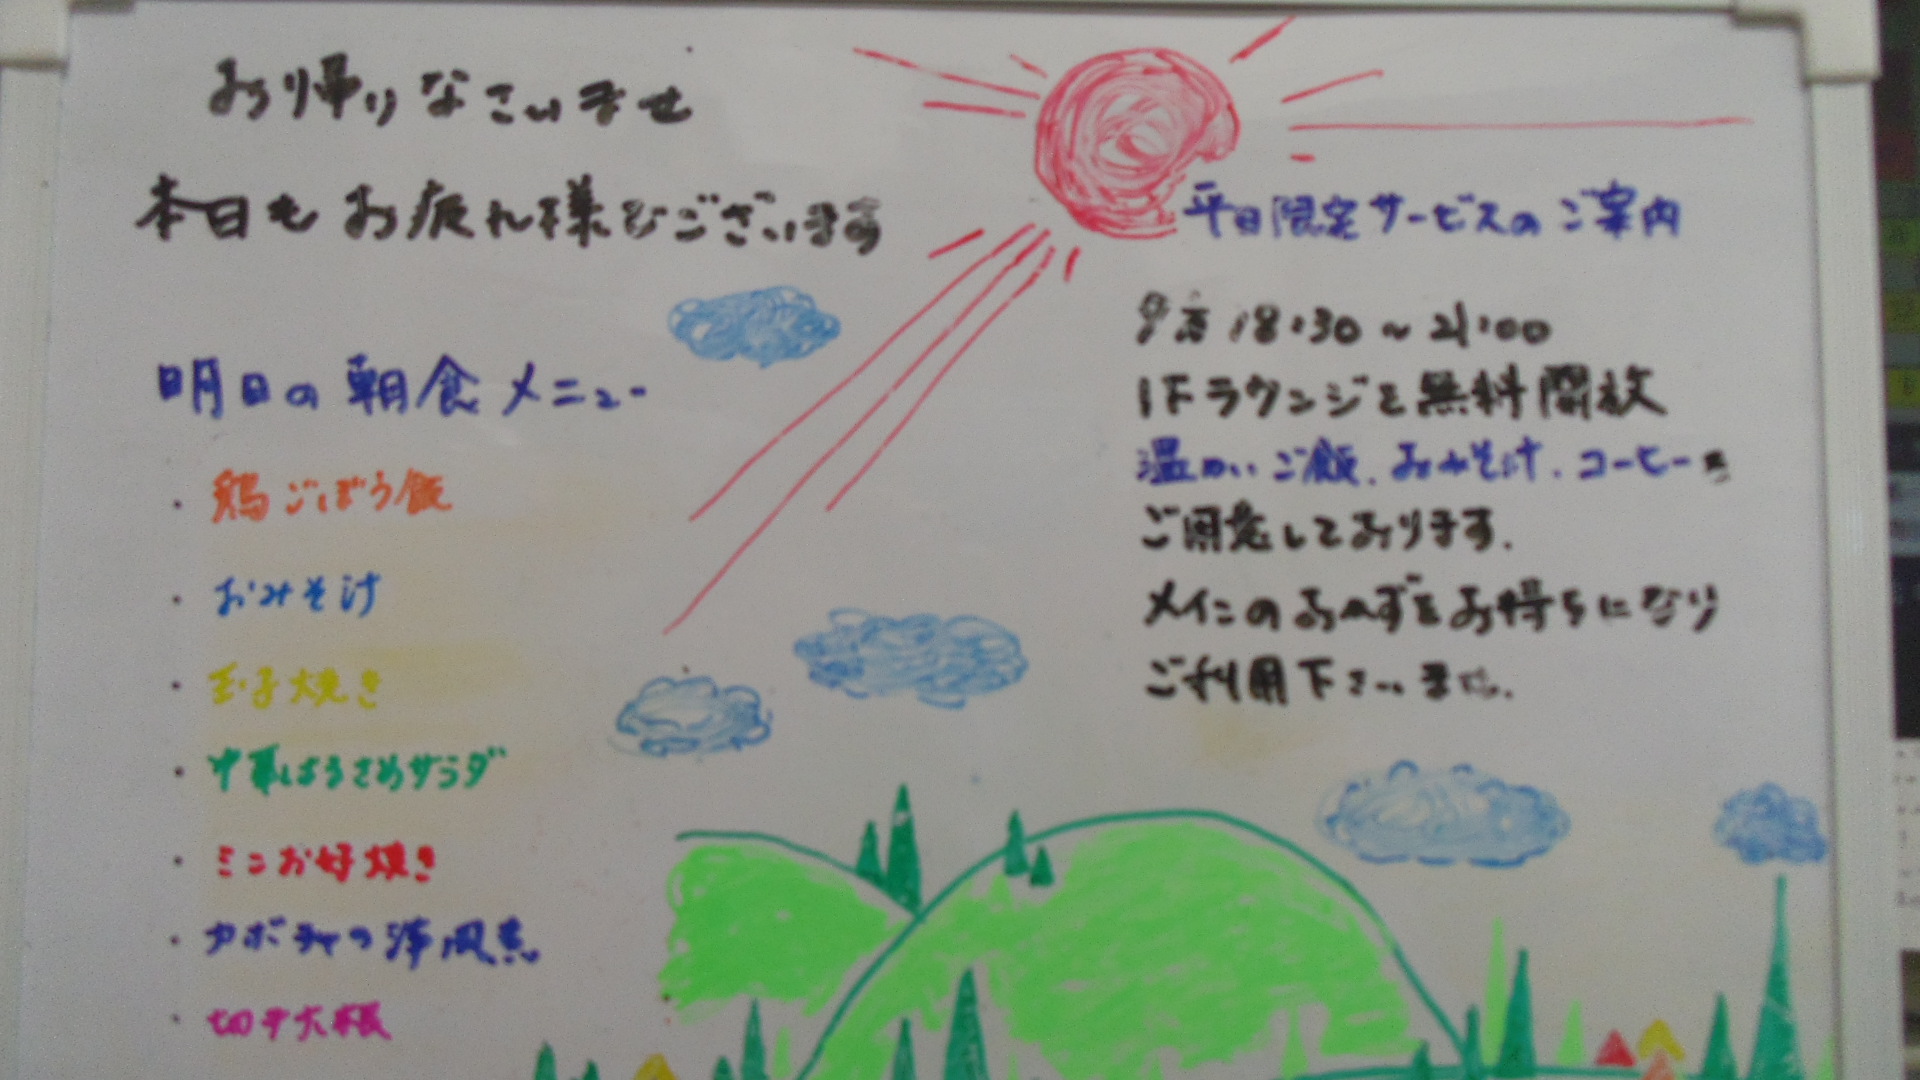 お帰りなさいませ
本日もお疲れ様でございます
明日の朝食メニュー
・鶏ごぼう飯
・おみそ汁
・玉子焼き
・中華はるさめサラダ
・ミニお好焼き
・カボチャの洋風煮
・切干大根
平日限定サービスのご案内
夕方 18:30~21:00
1Fラウンジを無料開放
温かいご飯、おみそ汁、コーヒーを
ご用意しております。
メインのおかずをお持ちになり
ご利用下さいませ。